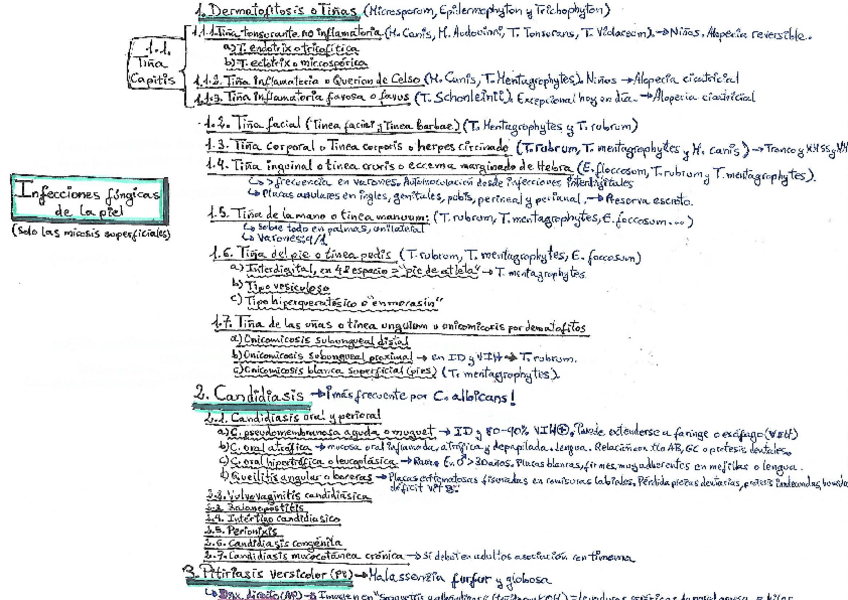 1. Dermatofitosis o Tiñas (Microsporum, Epidermophyton y Trichophyton)
1.1. Tiña Capitis
1.1.1 Tiña tonsurante no inflamatoria (M. Canis, M. Audouinni, T. Tonsurans, T. Violaceum). → Niños. Alopecia reversible.
a) T. endotrix o tricofítica
b) T. ectotrix o microspórica
1.1.2. Tiña inflamatoria o Querion de Celso (M. Canis, T. Mentagrophytes). Niños → Alopecia cicatricial
1.1.3. Tiña inflamatoria favosa o favus (T. Schonleinii). Excepcional hoy en día. → Alopecia cicatricial
1.2. Tiña facial (Tinea faciei y Tinea Barbae) (T. Mentagrophytes y T. rubrum)
1.3. Tiña corporal o Tinea corporis o herpes circinado (T. rubrum, T. mentagrophytes y M. canis) → Tronco y MMSS y MM
1.4. Tiña inguinal o tinea cruris o eccema marginado de Hebra (E. floccosum, T. rubrum y T. mentagrophytes).
↳ > frecuencia en varones. Autoinoculación desde infecciones interdigitales
↳ Placas anulares en ingles, genitales, pubis, perineal y perianal. → Preserva escroto.
Infecciones fúngicas de la piel
(Solo las micosis superficiales)
1.5. Tiña de la mano o tinea manuum: (T. rubrum, T. mentagrophytes, E. floccosum...)
↳ Sobre todo en palmas, unilateral
↳ Varones: 4/1
1.6. Tiña del pie o tinea pedis (T. rubrum, T. mentagrophytes, E. floccosum)
a) Interdigital, en 4º espacio = "pie de atleta" → T. mentagrophytes
b) Tipo vesiculoso
c) Tipo hiperqueratósico o "en mocasín"
1.7. Tiña de las uñas o tinea unguium u onicomicosis por dermatofitos
a) Onicomicosis subungueal distal
b) Onicomicosis subungueal proximal → en ID y VIH → T. rubrum.
c) Onicomicosis blanca superficial (pies) (T. mentagrophytes).
2. Candidiasis → ¡más frecuente por C. albicans!
2.1. Candidiasis oral y perioral
a) C. pseudomembranosa aguda o muguet → ID y 80-90% VIH⊕. Puede extenderse a faringe o esófago
b) C. oral atrófica → mucosa oral inflamada, atrófica y depapilada. Lengua. Relación con tto AB, GC o prótesis dentales.
c) C. oral hipertrófica o leucoplásica → Rara. En ♂ > 30 años. Placas blancas, firmes, muy adherentes en mejillas o lengua.
d) Queilitis angular o boceras → Placas eritematosas fisuradas en comisuras labiales. Pérdida piezas dentarias, prótesis inadecuadas,
déficit vit B.
2.2. Vulvovaginitis candidiásica
2.3. Balanopostitis
2.4. Intértrigo candidiásico
2.5. Perionixis
2.6. Candidiasis congénita
2.7. Candidiasis mucocutánea crónica → si debut en adultos asociación con timoma
3. Pitiriasis versicolor → Malassenzia furfur y globosa